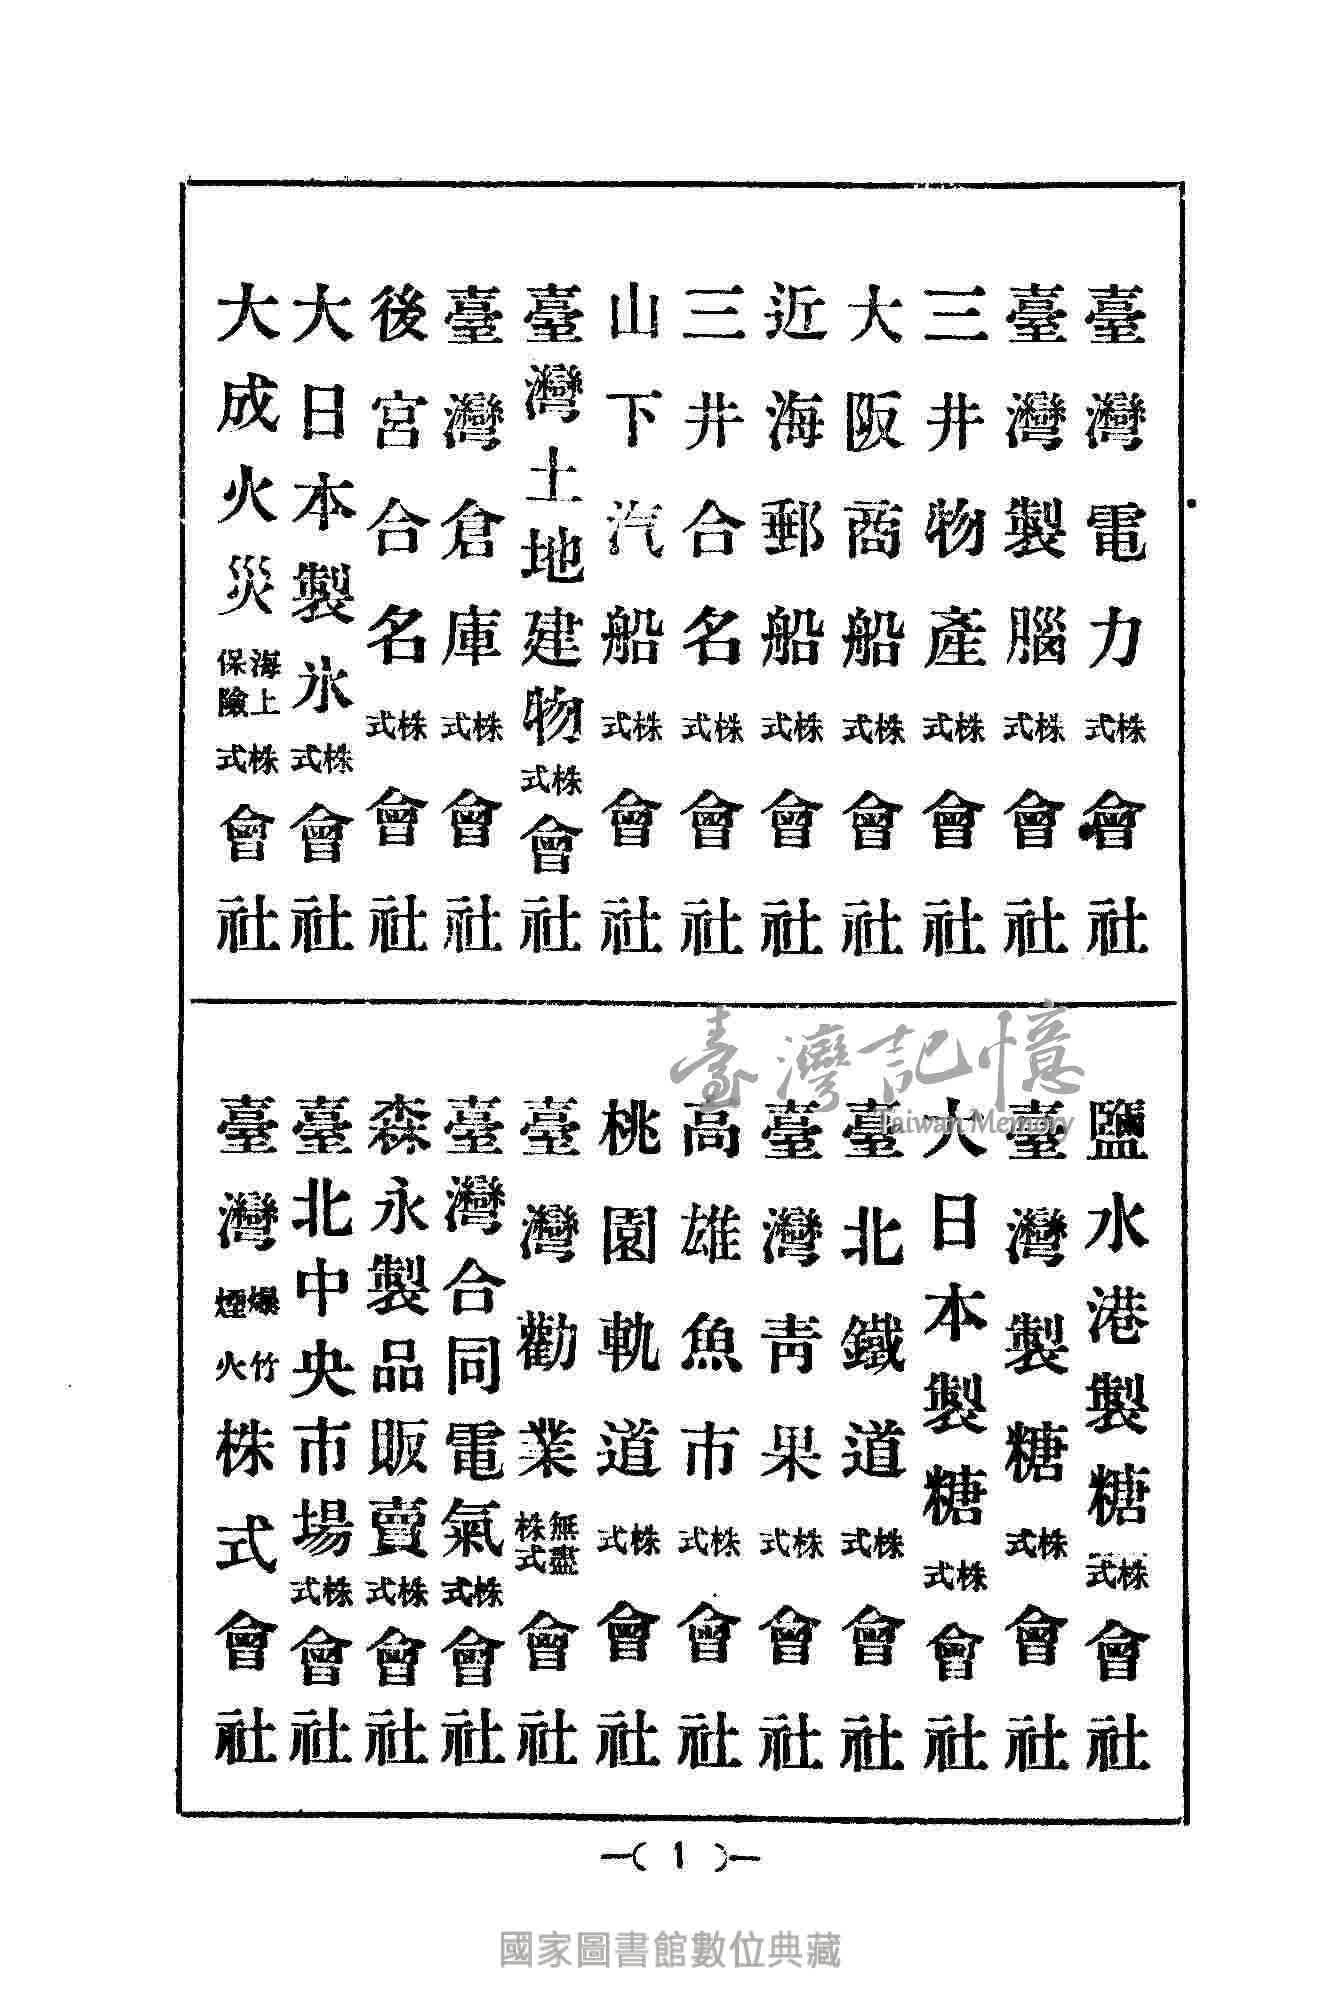 臺灣電力株式會社
臺灣製腦株式會社
三井物產株式會社
大阪商船株式會社
近海郵船株式會社
三井合名株式會社
山下汽船株式會社
臺灣土地建物株式會社
臺灣倉庫株式會社
後宮合名株式會社
大日本製氷株式會社
大成火災海上保險株式會社
鹽水港製糖株式會社
臺灣製糖株式會社
大日本製糖株式會社
臺北鐵道株式會社
臺灣靑果株式會社
高雄魚市株式會社
桃園軌道株式會社
臺灣勸業無盡株式會社
臺灣合同電氣株式會社
森永製品販賣株式會社
臺北中央市場株式會社
臺灣爆竹煙火株式會社
臺灣記憶
Taiwan Memory
—( 1 )—
國家圖書館數位典藏